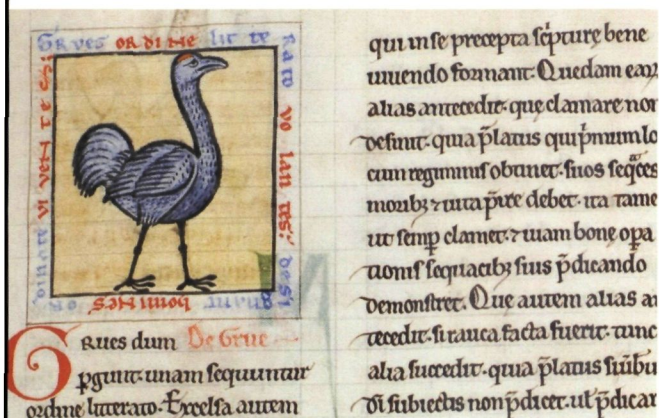 GRVES ORDINE LITTE
RATO VOLANTES: DESI
GNANT HOMINES OR
DINATE VIVENTES:
GRues dum De Grue
pgunt. unam sequuntur
ordine litterato. Excelsa autem
qui in se precepta sc̄pturę bene
uiuendo formant. Quedam earꝝ
alias antecedit. que clamare non
desinit. quia p̄latus qui p̄mum lo
cum regiminis obtinet. suos seq̄ces
moribꝫ ⁊ uita p̄ire debet. ita tame
ut semp clamet. ⁊ uiam bone opa
tionis sequacibꝫ suis p̄dicando
demonstret. Que autem alias an
tecedit. si rauca facta fuerit. tunc
alia succedit. quia p̄latus si
di subiectis non p̄dicet. ul̄ p̄dicar